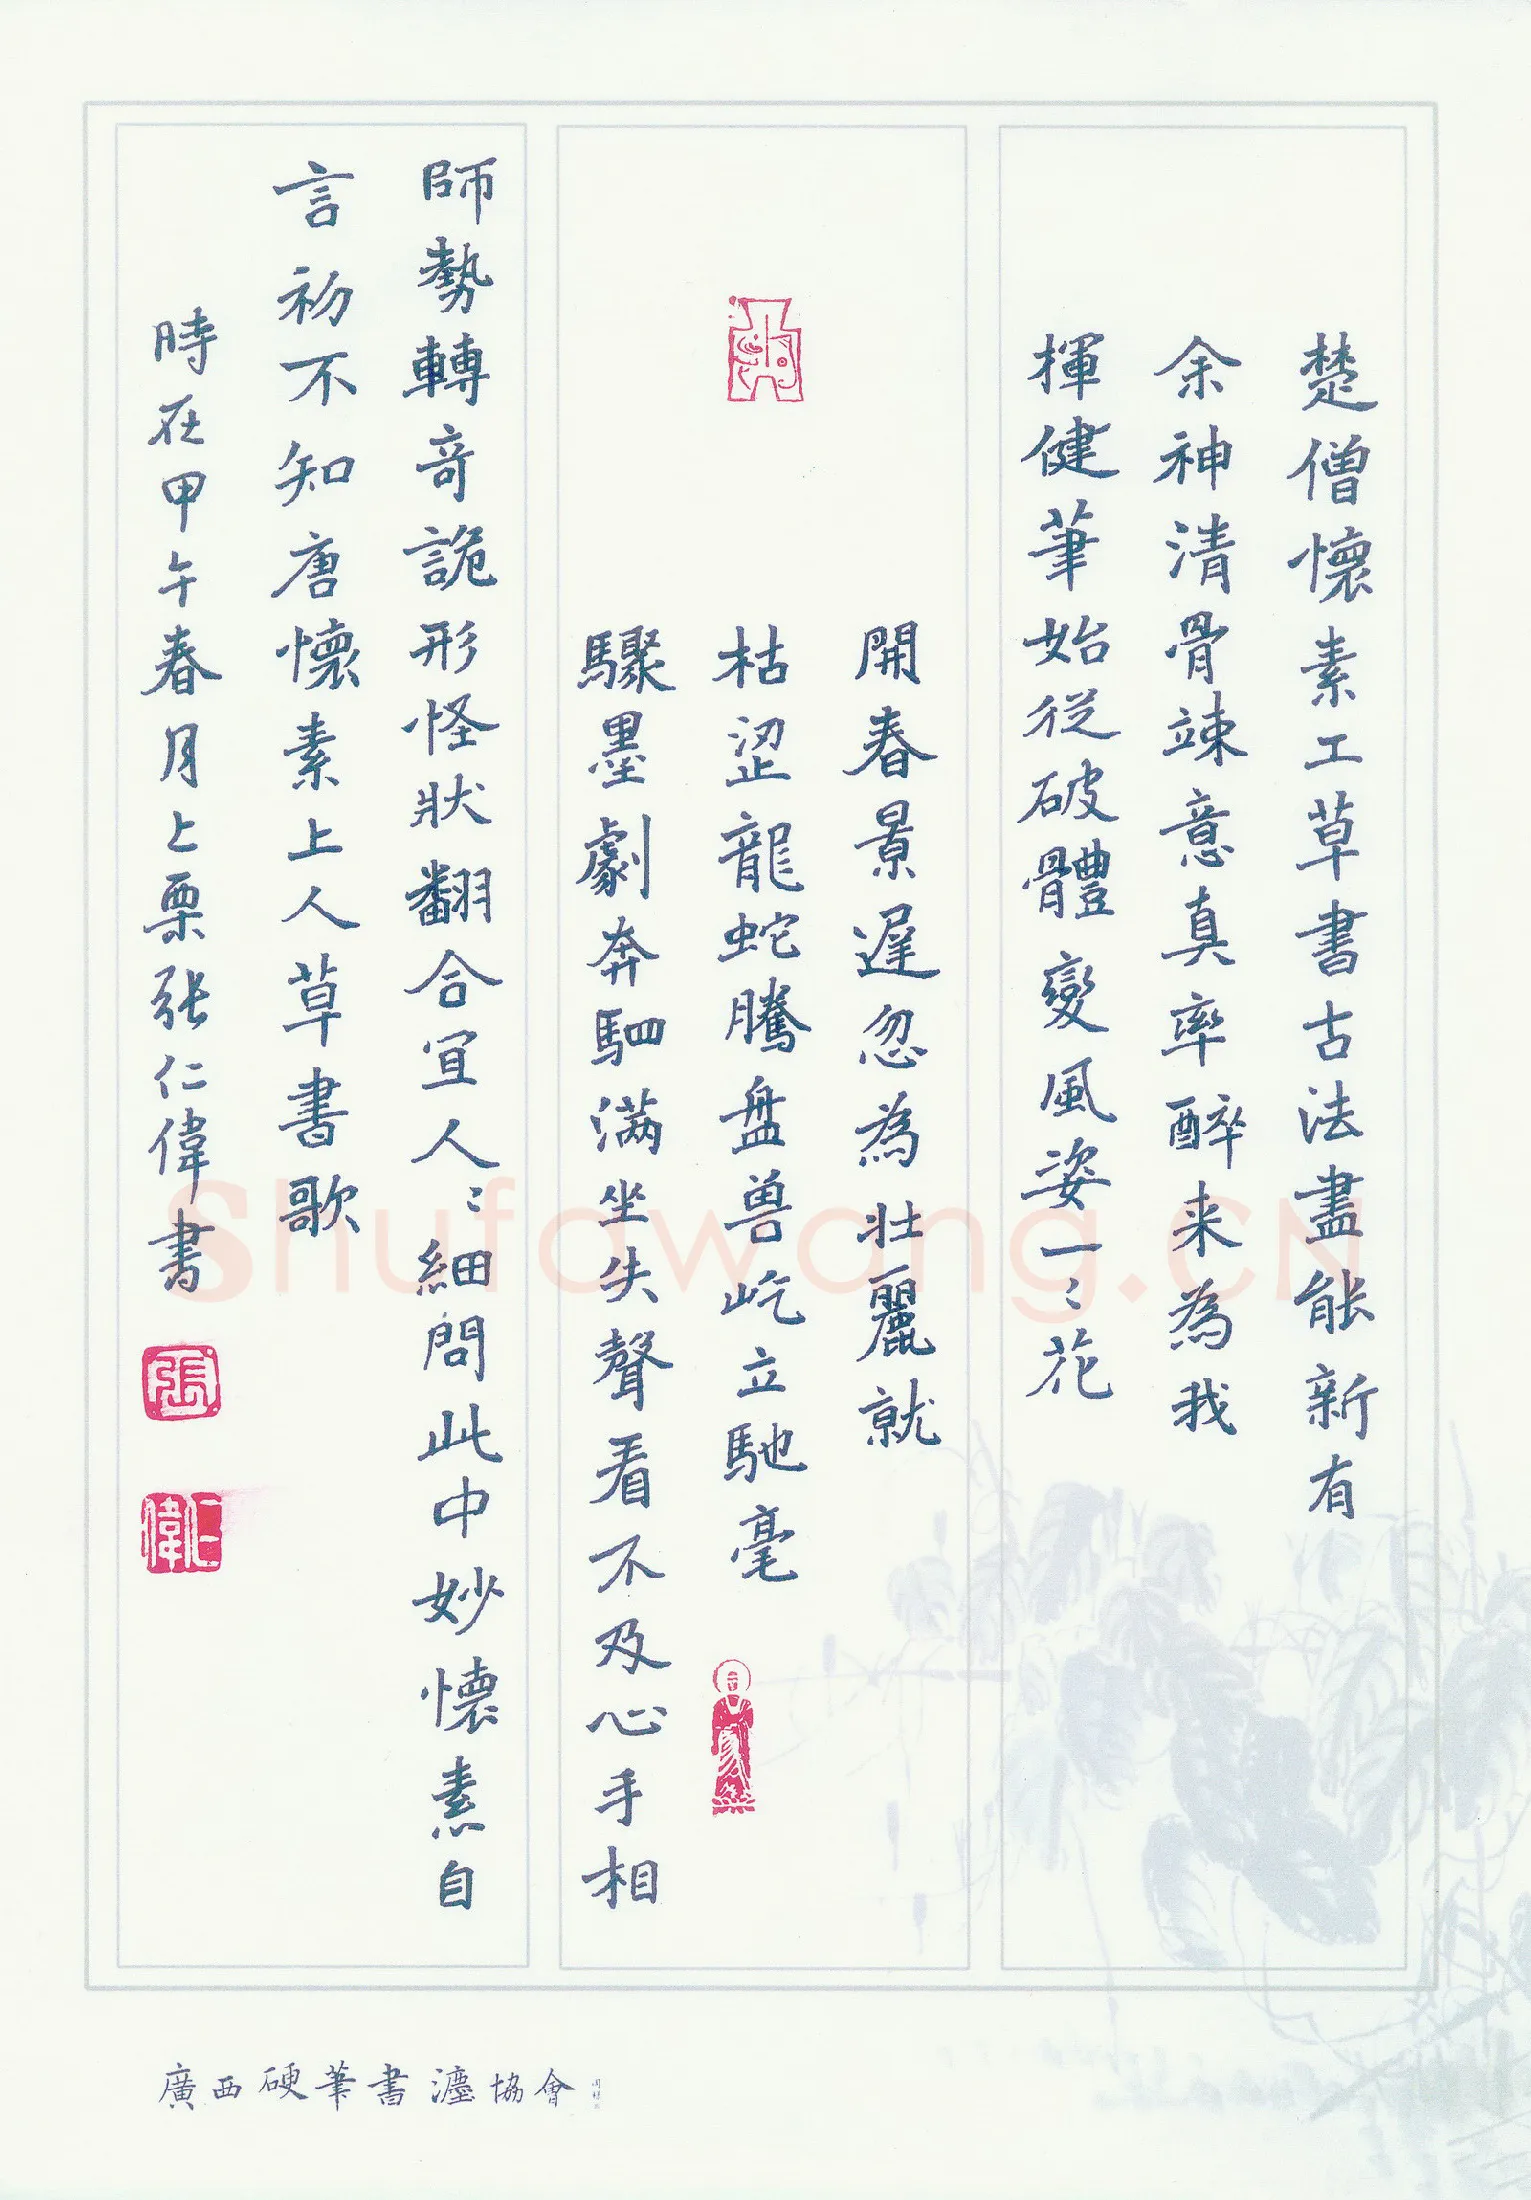 楚僧懷素工草書古法盡能新有
余神清骨竦意真率醉来為我
揮健筆始從破體變風姿一〻花
開春景遲忽為壯麗就
枯澀龍蛇騰盘兽屹立馳毫
驟墨劇奔駟满坐失聲看不及心手相
師勢轉奇詭形怪狀翻合宜人〻細問此中妙懷素自
言初不知唐懷素上人草書歌
時在甲午春月上栗張仁偉書
張
仁偉
廣西硬筆書灋協會
Shufawang.CN